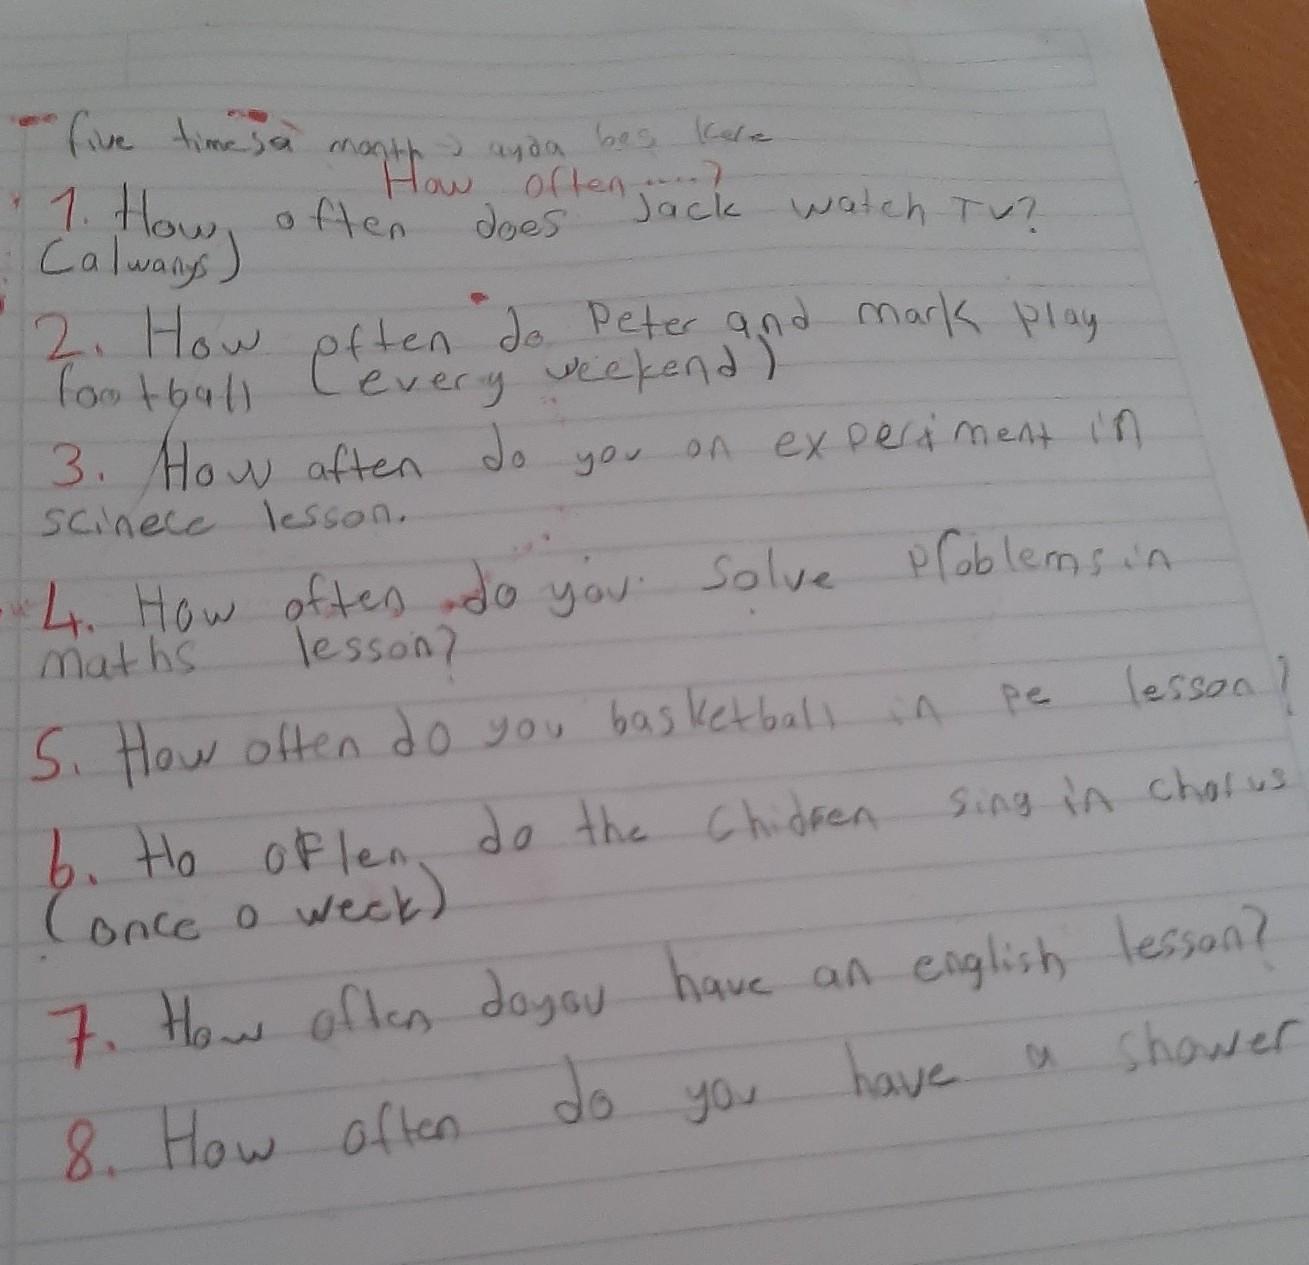 five times a month > ayda beş kere
How often.....?
1. How often does Jack watch TV?
(alwanys)
2. How often do Peter and mark play
football (every weekend)
3. How aften do you on experiment in
scinece lesson.
4. How often do you solve problems in
maths lesson?
5. How often do you basketball in pe lesson?
6. Ho oflen do the Chidren sing in chorus
(once a week)
7. How often doyou have an english lesson?
8. How often do you have a shower